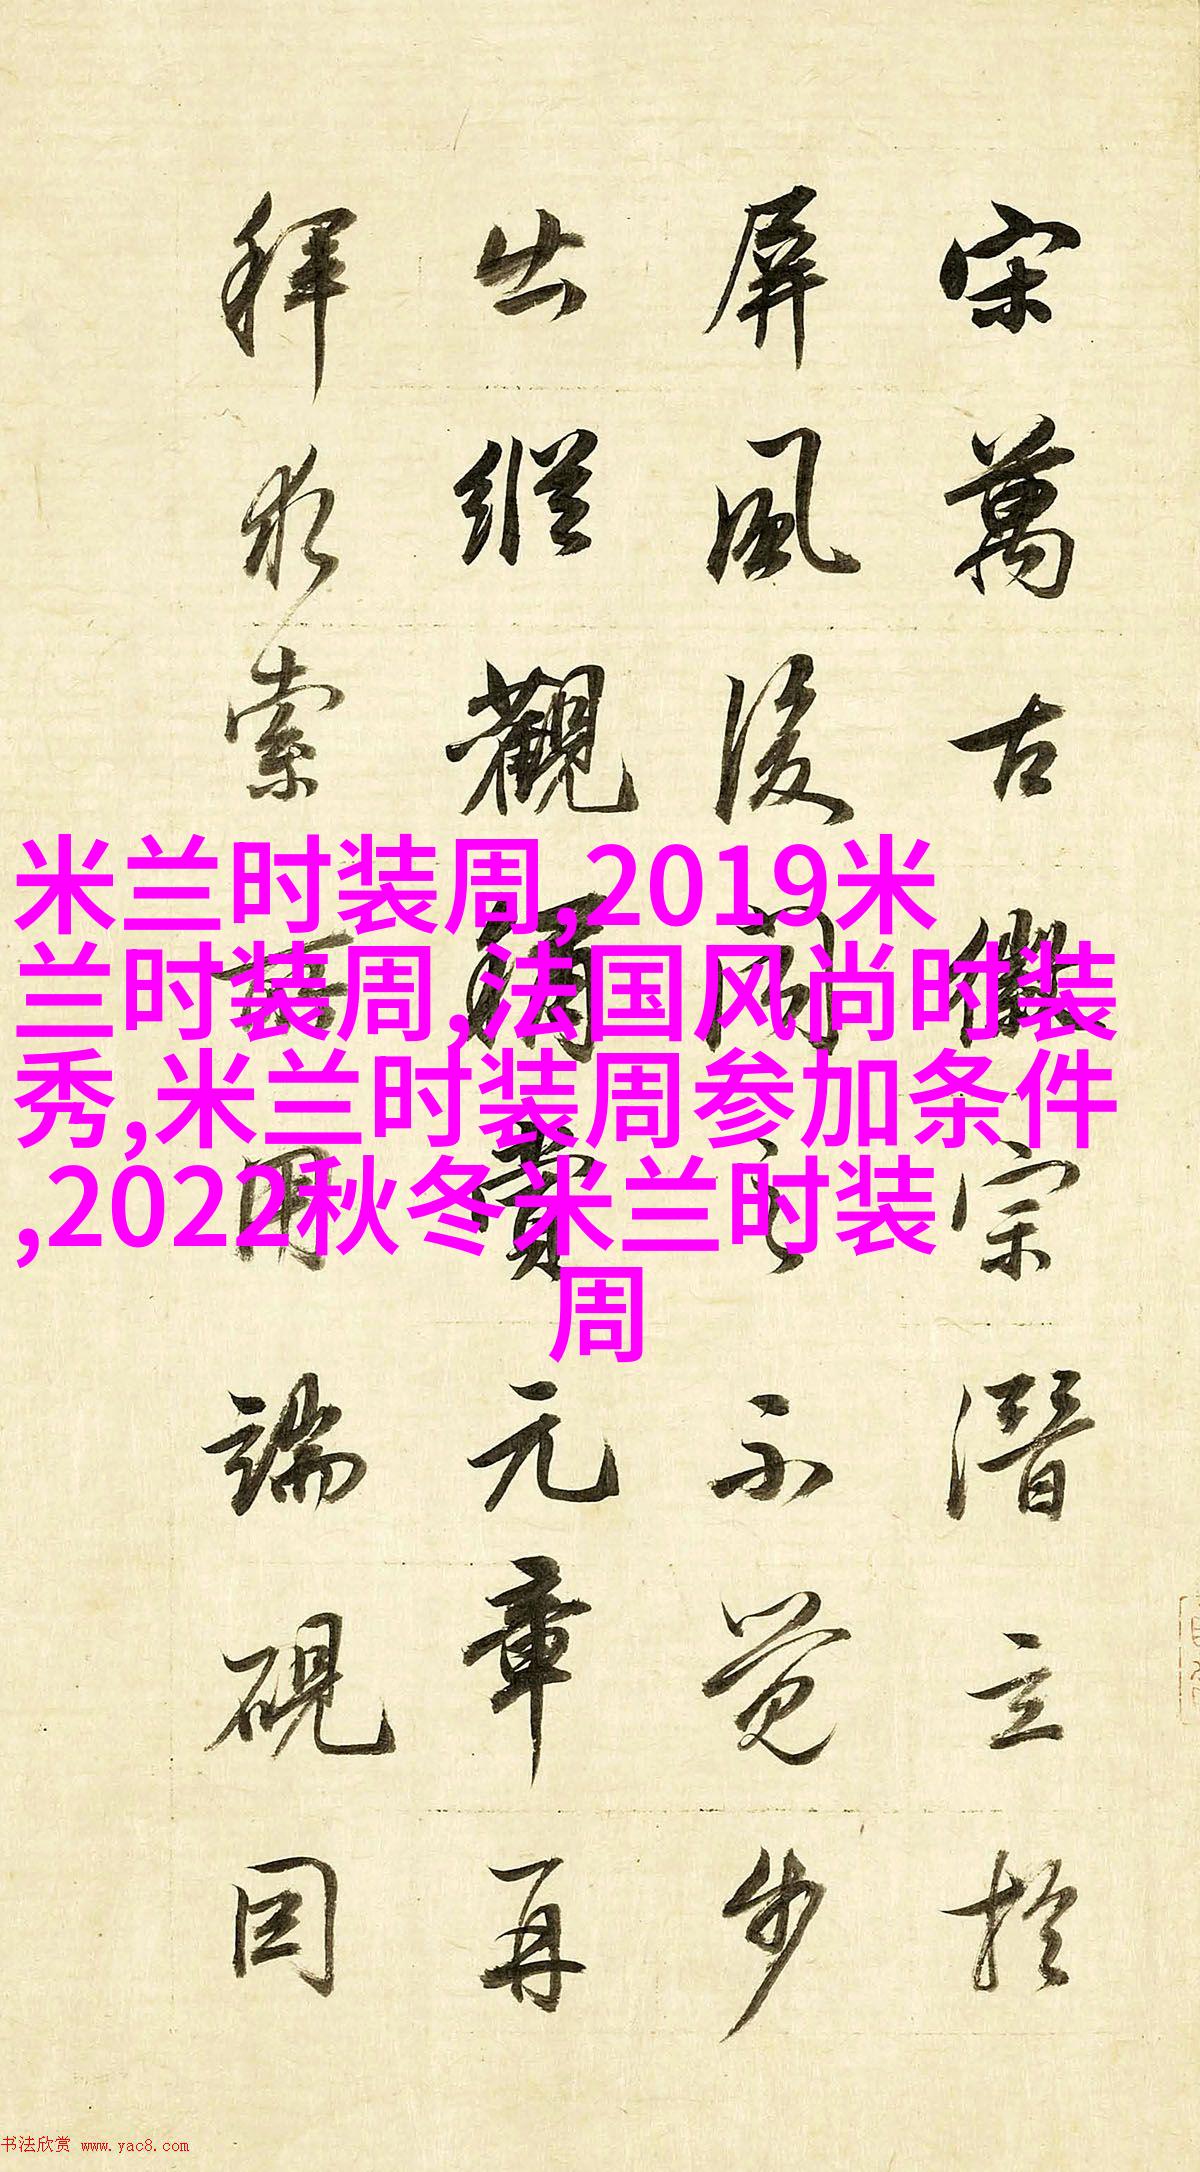 宋萬古徽宗潛立於
屏風後閱之不覺步
出縱觀稱賞元章再
拜求索所用端硯因
米兰时装周,2019米
兰时装周,法国风尚时装
秀,米兰时装周参加条件
,2022秋冬米兰时装
周
书法欣赏 www.yac8.com